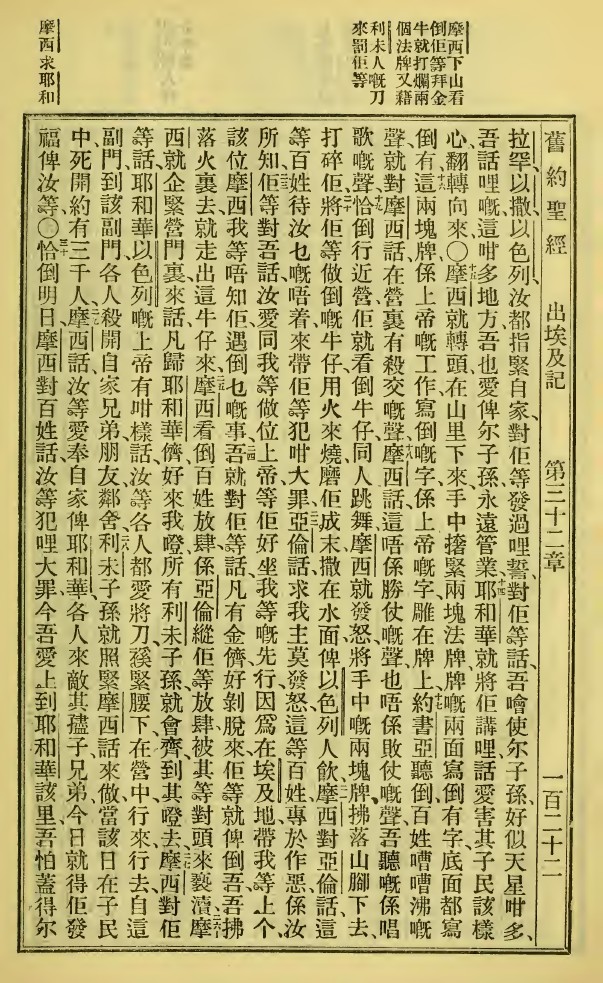 舊約聖經 出埃及記 第三十二章 一百二十二
摩西下山看
倒佢等拜金
牛就打爛兩
個法牌又藉
利未人嘅刀
來罰佢等
摩西求耶和
拉罕、以撒、以色列、汝都指緊自家、對佢等發過哩誓、對佢等話、吾噲使尔子孫、好似天星咁多、
吾話哩嘅這咁多地方、吾也愛俾尔子孫、永遠管業、十四耶和華就將佢講哩話、愛害其子民該樣
心、翻轉向來、〇十五摩西就轉頭、在山里下來、手中搼緊兩塊法牌、牌嘅兩面寫倒有字、底面都寫
倒有、十六這兩塊牌、係上帝嘅工作、寫倒嘅字、係上帝嘅字、雕在牌上、十七約書亞聽倒百姓嘈嘈沸嘅
聲、就對摩西話、在營裏有殺交嘅聲、十八摩西話、這唔係勝仗嘅聲、也唔係敗仗嘅聲、吾聽嘅係唱
歌嘅聲、十九恰倒行近營、佢就看倒牛仔、同人跳舞、摩西就發怒、將手中嘅兩塊牌、拂落山腳下去、
打碎佢、二十將佢等做倒嘅牛仔、用火來燒、磨佢成末、撒在水面、俾以色列人飲、二一摩西對亞倫話、這
等百姓待汝乜嘅唔着、來帶佢等犯咁大罪、二二亞倫話、求我主莫發怒、這等百姓、專於作惡、係汝
所知、二三佢等對吾話、汝愛同我等做位上帝等佢好坐我等嘅先行、因爲在埃及地、帶我等上个、
該位摩西、我等唔知佢遇倒乜嘅事、二四吾就對佢等話、凡有金儕好剝脫來、佢等就俾倒吾、吾拂
落火裏去、就走出這牛仔來、二五摩西看倒百姓放肆、係亞倫縱佢等放肆、被其等對頭來褻瀆、二六摩
西就企緊營門裏來話、凡歸耶和華儕、好來我㘭、所有利未子孫、就會齊到其㘭去、二七摩西對佢
等話、耶和華以色列嘅上帝有咁樣話、汝等各人、都愛將刀䙅緊腰下、在營中行來行去、自這
副門、到該副門、各人殺開自家兄弟、朋友、鄰舍、二八利未子孫、就照緊摩西話來做、當該日在子民
中、死開約有三千人、二九摩西話、汝等愛奉自家俾耶和華、各人來敵其孻子、兄弟、今日就得佢發
福俾汝等、〇三十恰倒明日、摩西對百姓話、汝等犯哩大罪、今吾愛上到耶和華該里、吾怕蓋得尔